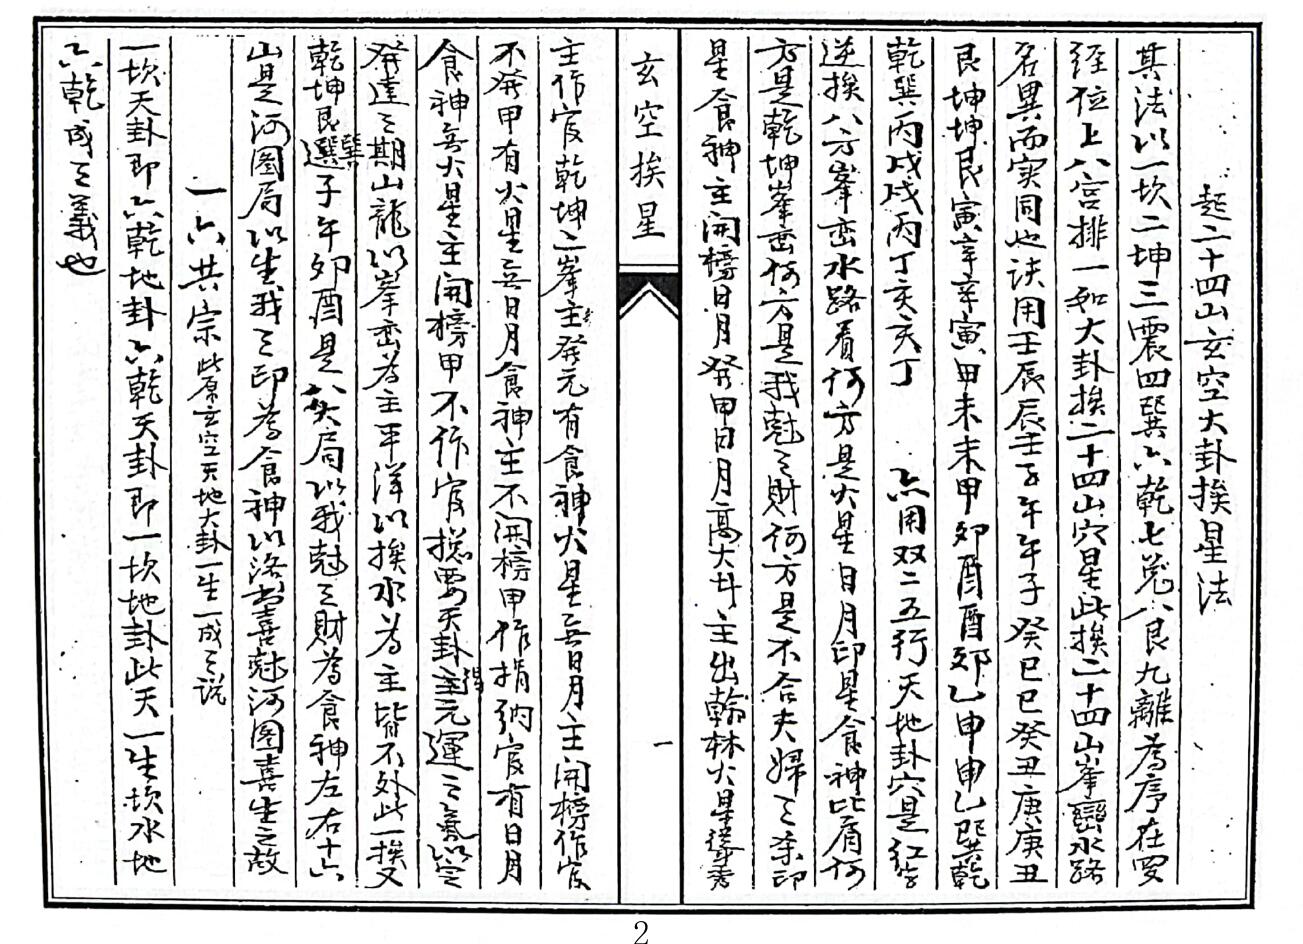 起二十四山玄空大卦挨星法
其法以一坎二坤三震四巽六乾七兌八艮九離為序在
经位上八宫排一如大卦挨二十四山穴星此挨二十四山峯巒水路
名異而实同也诀用壬辰辰壬子午午子癸巳巳癸丑庚庚丑
艮坤坤艮寅辛辛寅甲未未甲卯酉酉卯乙申申乙巽乾
乾巽丙戌戌丙丁亥亥丁　六用双二五行天地卦穴是红字
逆挨八方峯峦水路看何方是火星日月印星食神比肩何
方是乾坤峯峦何方是我尅之財何方是不合夫婦之杀印
星食神主開榜日月癸甲日月高大斗主出翰林火星峯秀
玄空挨星
一
主作官乾坤二峯主發元有食神火星無日月主開榜作官
不發甲有火星無日月食神主不開榜甲作捐納官有日月
食神無火星主開榜甲不作官揔要天卦主元運之氣以定
發達之期山龍以峯峦為主平洋以挨水為主皆不外此一挨又
乾坤艮巽子午卯酉是大局以我尅之財為食神左右十六
山是河圖局以生我之印為食神以洛書喜尅河圖喜生之故
一六共宗此原玄空天地大卦一生一成之说
一坎天卦即六乾地卦六乾天卦即一坎地卦此天一生坎水地
六乾成之義也
2